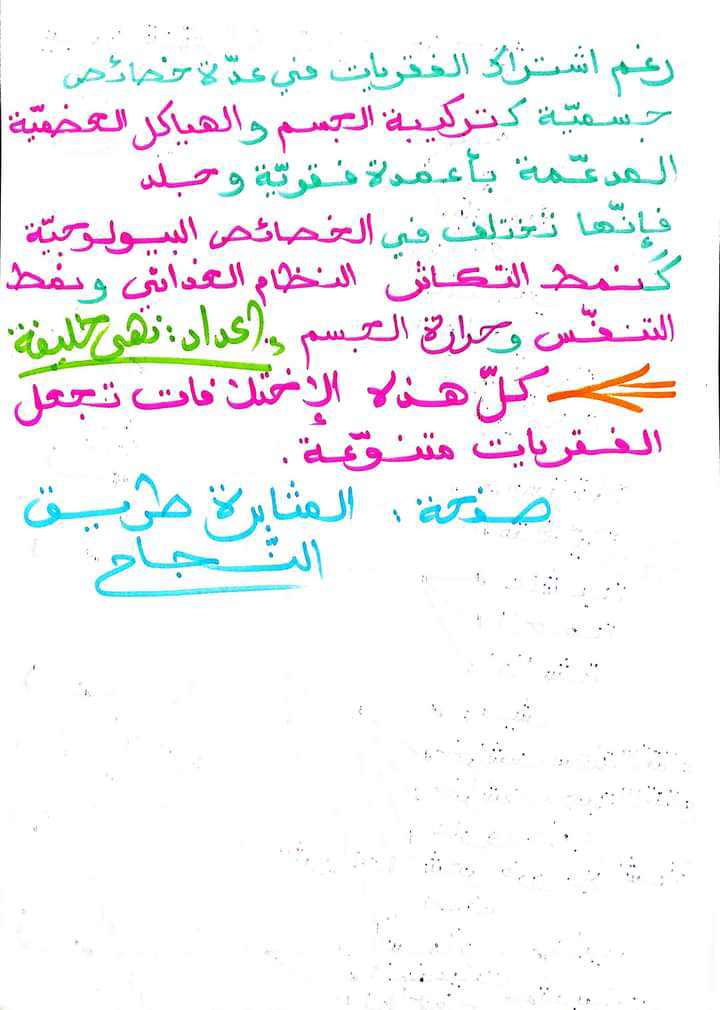 رغم اشتراك الفقريات في عدّة خصائص
جسميّة كتركيبة الجسم والهياكل العضميّة
المدعّمة بأعمدة فقريّة وجلد
فإنّها تختلف في الخصائص البيولوجيّة
كنمط التكاثر النظام الغذائي ونمط
التنفّس وحرارة الجسم. إعداد: نهى خليفة
كلّ هذه الإختلافات تجعل
الفقريات متنوّعة.
صفحة: المثابرة طريق
النّجاح